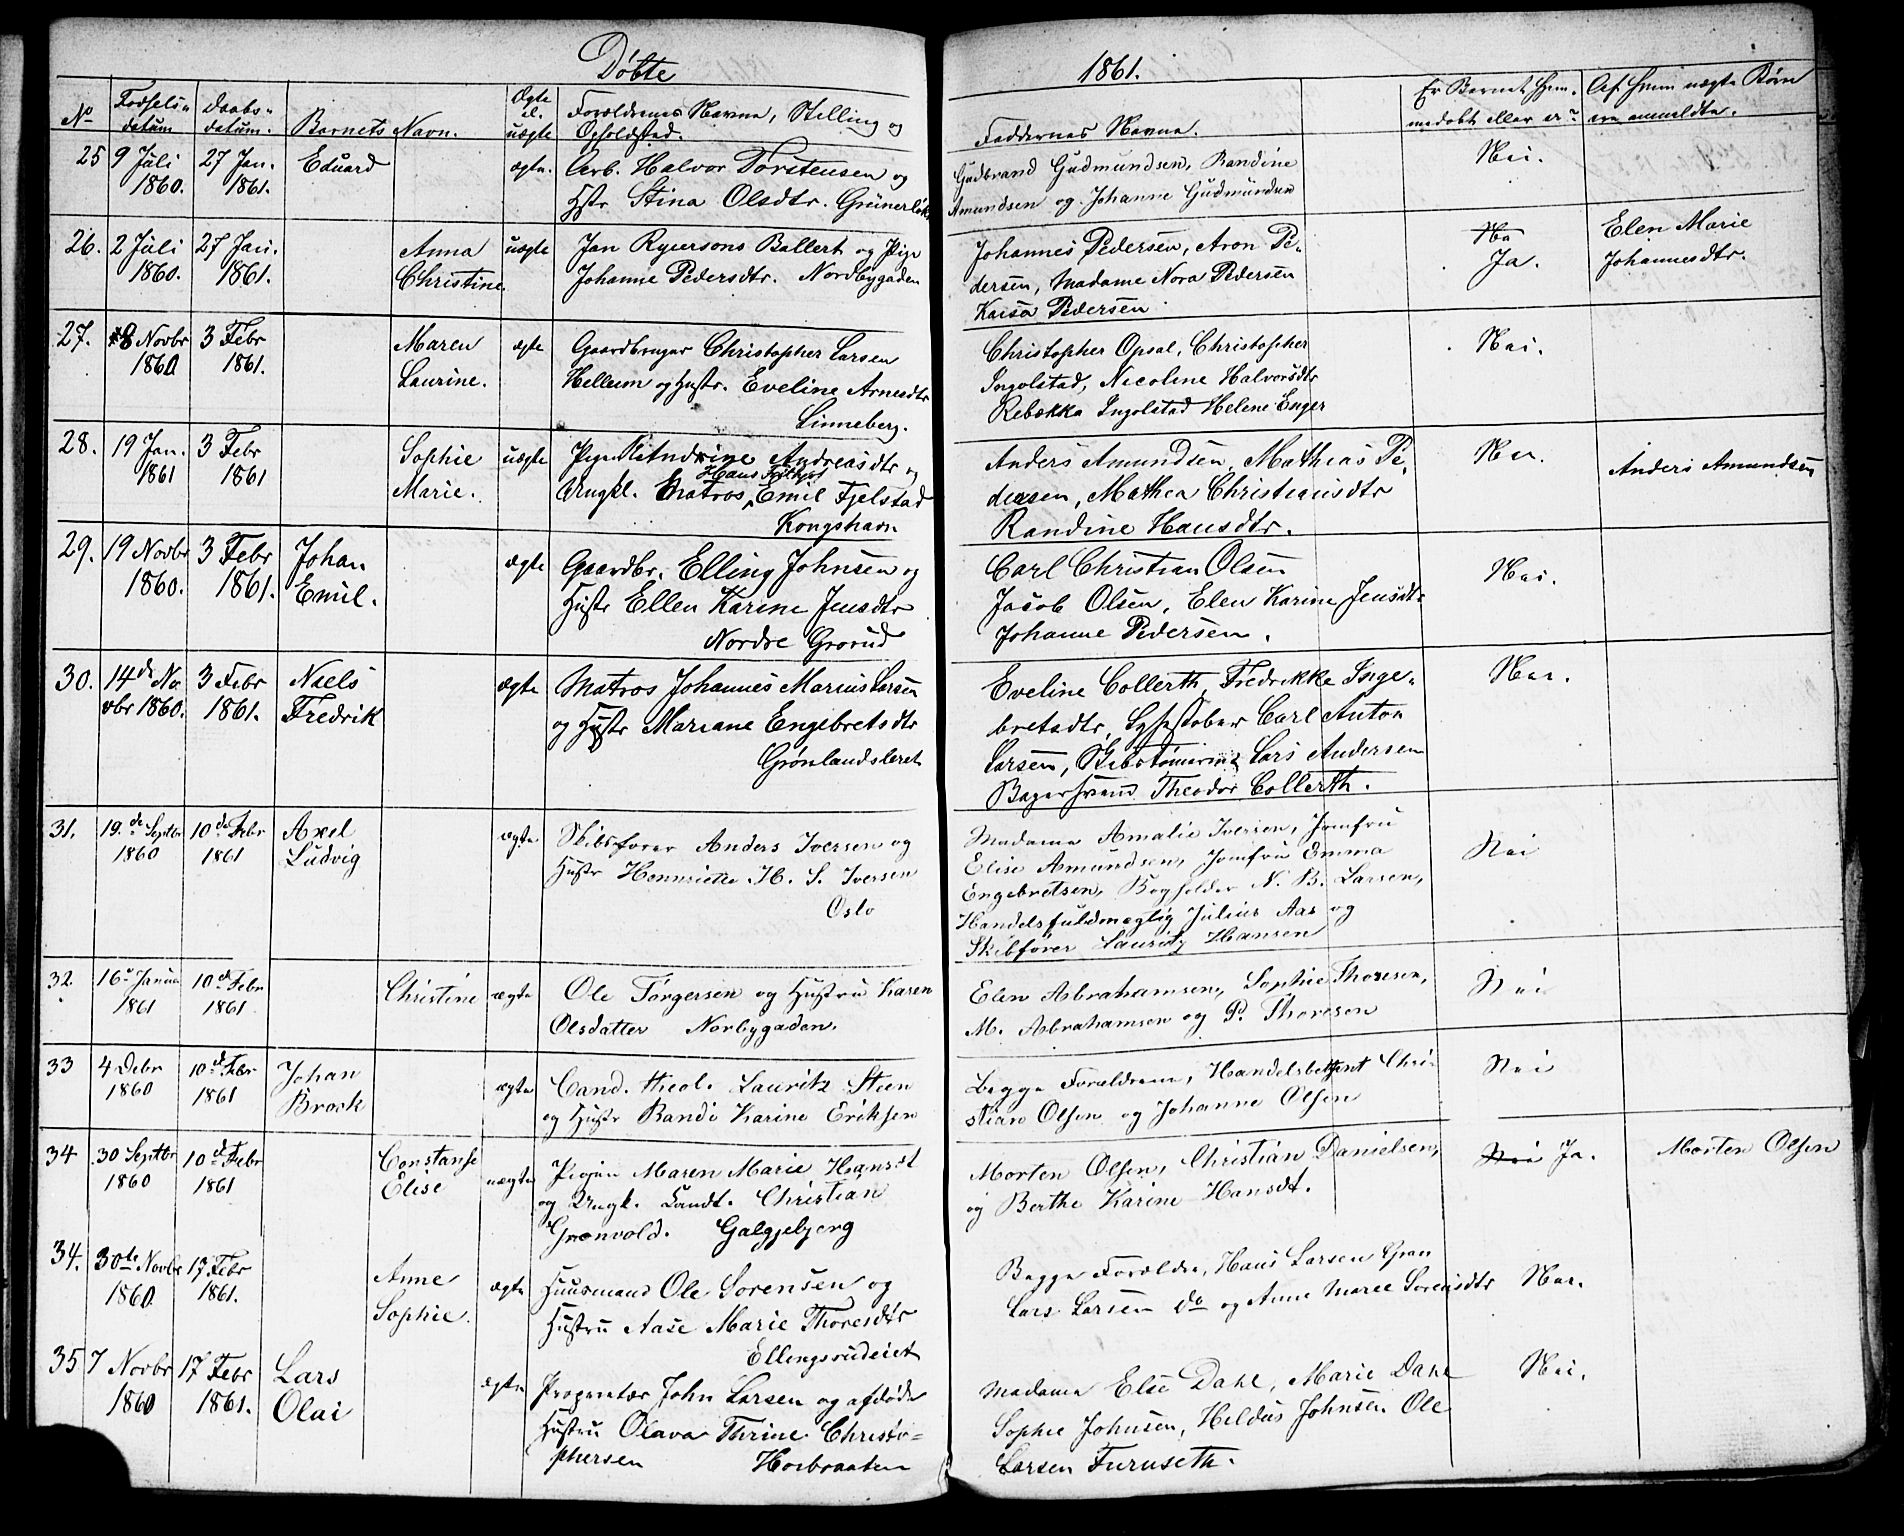 Døbte
1861.
No Fødsels= datum Daabs= datum. Barnets Navn. Ægte el. uægte Forældrenes Navne, Stilling og Opholdsted.
Faddernes Navne. Er Barnet hjem= medøbt eller ei? Af hvem uægte Børn ere anmeldte.
25 9 Juli 1860. 27 Jan. 1861. Eduard ægte. Arb. Halvor Torstensen og
Hstr Stina Olsdtr. Grünerløk
Gudbrand Gudmundsen, Randine
Amundsen og Johanne Gudmundsen
Nei.
26. 2 Juli 1860. 27 Jan. 1861. Anna Christine uægte Jan Ryersons Ballert og Pige
Johanne Pedersdtr. Nordbygaden
Johannes Pedersen, Aron Pe=
dersen, Madame Nora Pedersen
Kaisa Pedersen
Ja.
Elen Marie
Johannesdtr.
27. 8 Novbr 1860 3 Febr 1861. Maren Laurine. ægte Gaardbruger Christopher Larsen
Hellum og Hustr. Eveline Arnesdtr
Linneberg.
Christopher Opsal, Christopher
Ingolstad, Nicoline Halvorsdtr
Rebekka Ingolstad Helene Enger
Nei.
28. 19 Jan. 1861 3 Febr 1861 Sophie Marie. uægte Pige Andreasdtr og
Ungkl. Matros, Hans Emil Fjelstad
Kongshavn
Anders Amundsen, Mathias Pe=
dersen, Mathea Christiansdtr
Randine Hansdtr.
Nei.
Anders Amundsen
29. 19 Novbr 1860. 3 Febr 1861. Johan Emil. ægte Gaardbr. Elling Johnsen og
Hustr Ellen Karine Jensdtr
Nordre Grorud
Carl Christian Olsen
Jacob Olsen, Elen Karine Jensdtr
Johanne Pedersen.
Nei.
30. 14de No= vbr 1860. 3 Febr 1861. Niels Fredrik ægte Matros Johannes Marius Larsen
og Hustr Mariane Engebretsdtr
Grønlandsleret
Eveline Collerth, Fredrikke Inge=
bretsdtr, Carl Anton
Larsen, Lars Andersen
Bagersvend Theodor Collerth.
Nei.
31. 19.de Septbr 1860 10de Febr 1861 Axel Ludvig ægte Skibsfører Anders Iversen og
Hustr Hennriette H. S. Iversen
Oslo
Madame Amalie Iversen, Jomfru
Elise Amundsen, Jomfru Emma
Engebretsen, Bogholder N. B. Larsen,
Handelsfuldmægtig Julius Aas og
Skibfører Lauritz Hansen
Nei
32. 16 Januar 1861 10de Febr 1861 Christine ægte Ole Torgersen og Hustru Karen
Olsdatter Norbygaden.
Elen Abrahamsen, Sophie Thoresen,
M. Abrahamsen og P. Thoresen
Nei
33 4 Debr 1860 10de Febr 1861 Johan Brock ægte Cand. theol. Lauritz Steen
og Hustr Randi Karine Eriksen
Begge Forældrene, Handelsbetjent Chri=
stian Olsen og Johanne Olsen
Nei
34 30 Septbr 1860 10de Febr 1861 Constanse Elise uægte Pigen Maren Marie Hansdt
og Ungk. Landt. Christian
Grønvold. Galgjebjerg
Morten Olsen, Christian Danielsen,
og Berthe Karine Hansdt.
Nei Ja.
Morten Olsen
34. 30te Novbr 1860 17 Febr 1861. Anne Sophie. ægte Huusmand Ole Sorensen og
Hustru Aase Marie Thoresdtr
Ellingsrudeiet
Begge Forældre, Hans Larsen Gran
Lars Larsen do og Anne Marie Sorensdtr
Nei.
35 7 Novbr 1860 17 Febr 1861. Lars Olai ægte Proprietær John Larsen og afdøde
Hustru Olava Thrine Christo=
phersen Hoibraaten
Madame Else Dahl, Marie Dahl
Sophie Johnsen, Heldus Johnsen Ole
Larsen Furuseth.
Nei.